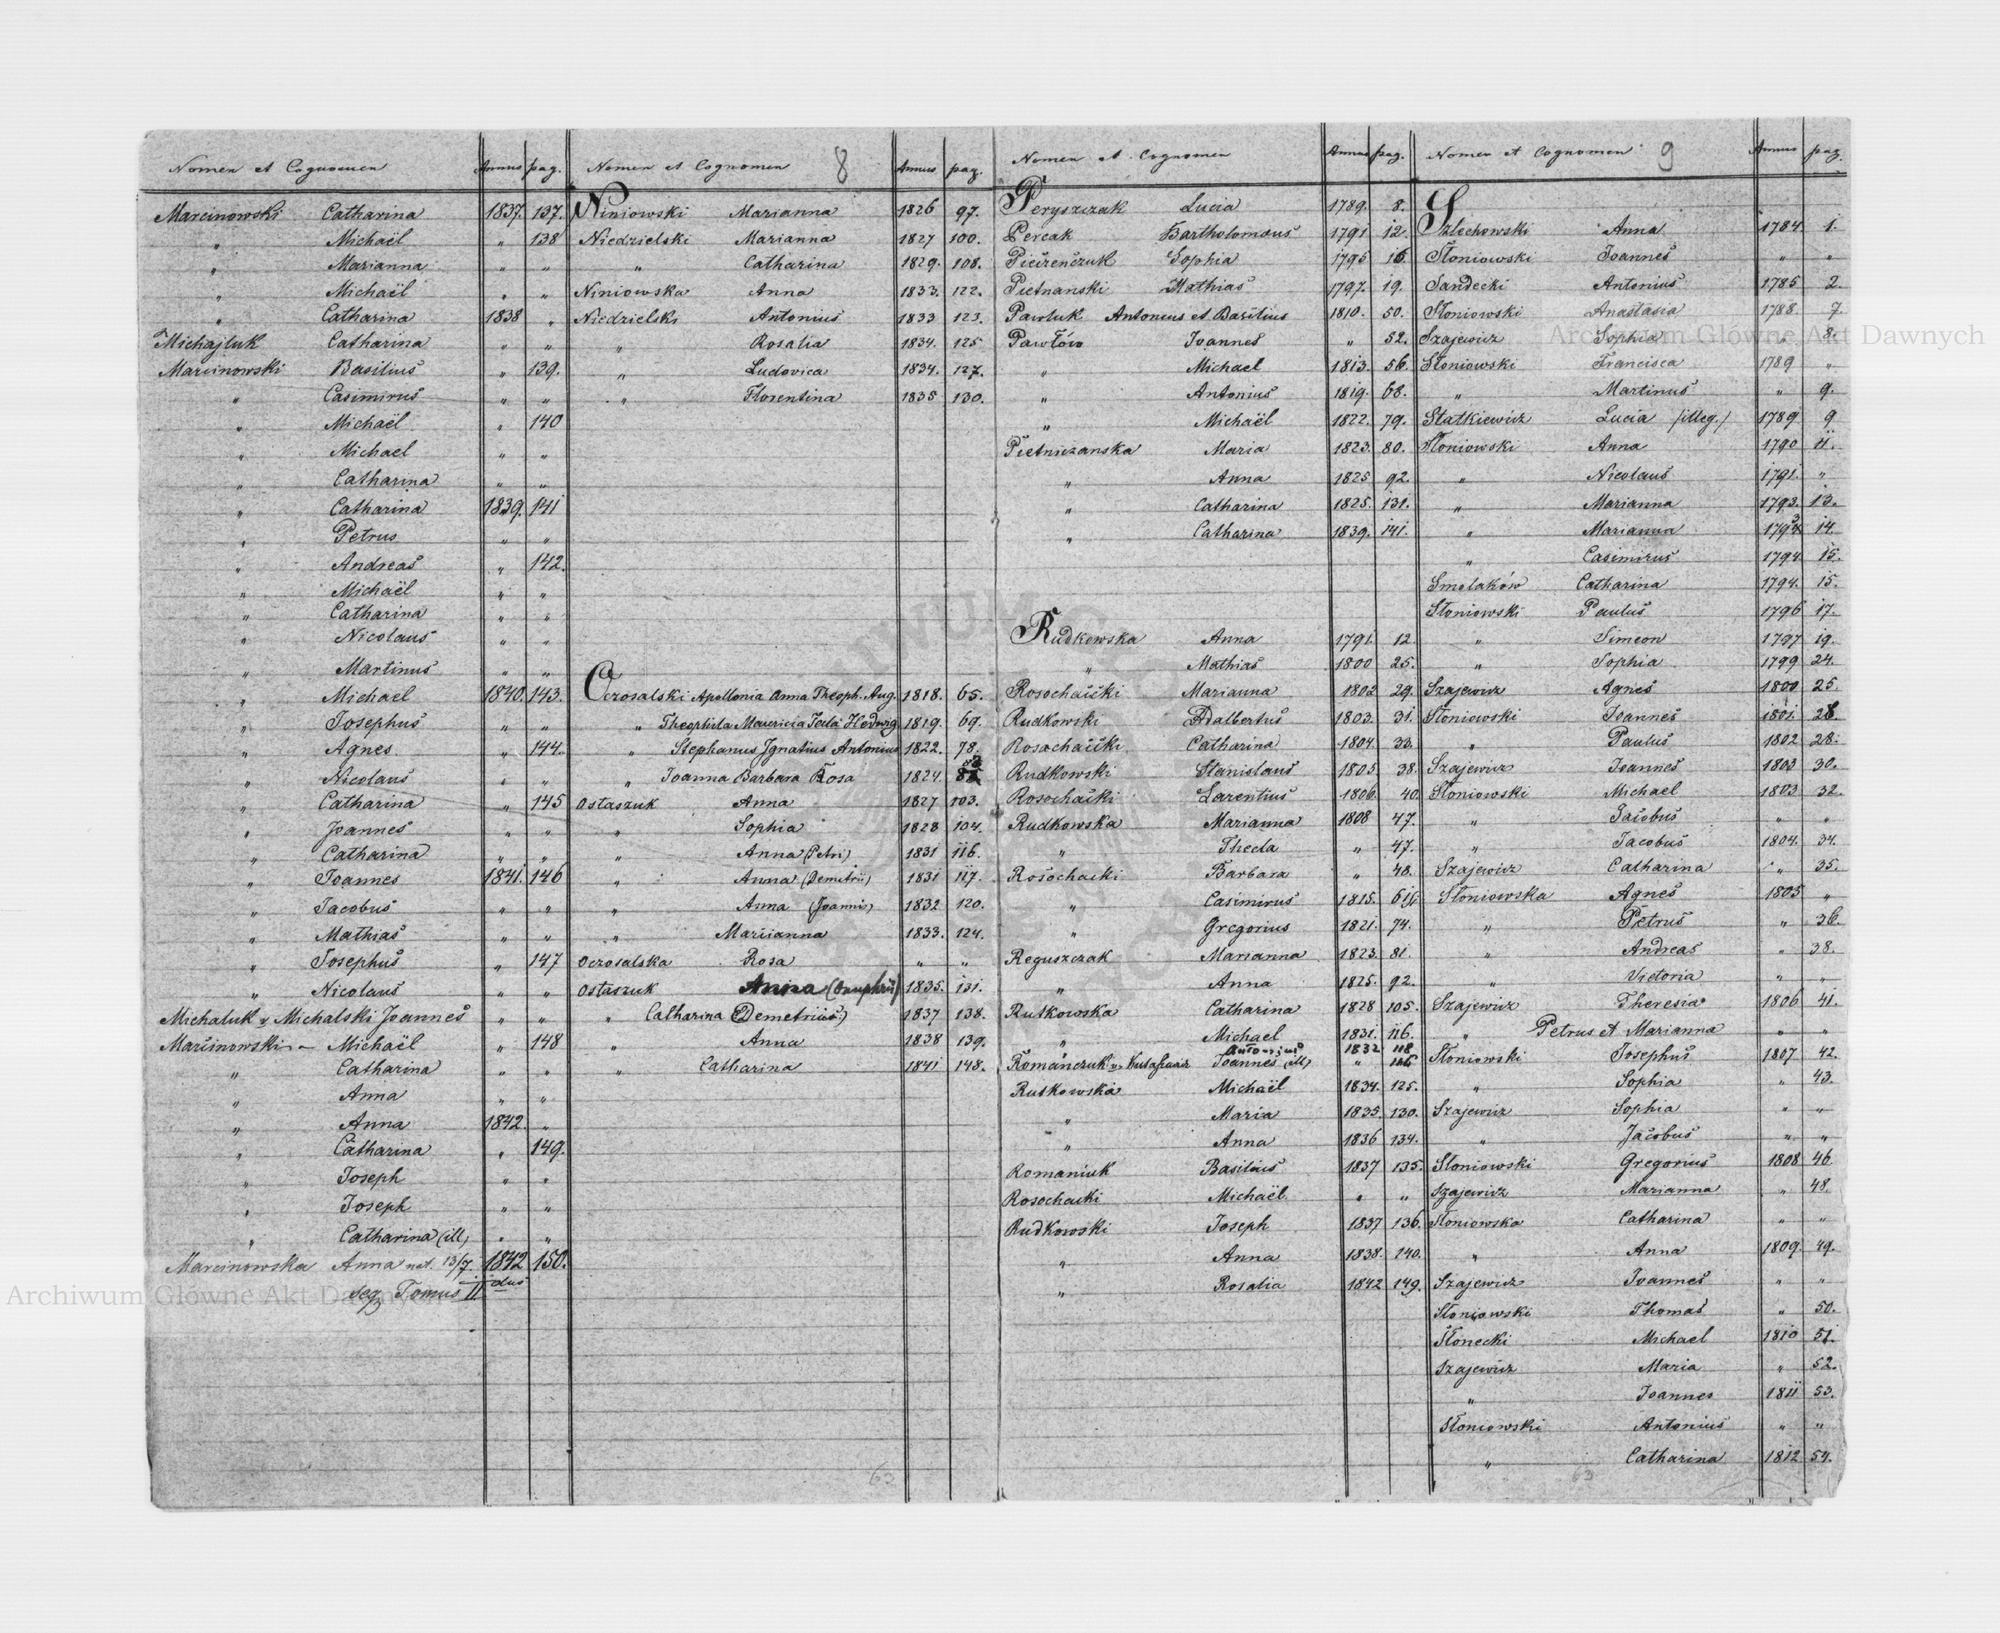 Nomen et Cognomen Annus pag.
Marcinowski Catharina 1837. 137.
" Michaël " 138
" Marianna " "
" Michaël " "
" Catharina 1838 "
Michajluk Catharina " "
Marcinowski Basilius " 139.
" Casimirus " "
" Michaël " 140
" Michael " "
" Catharina " "
" Catharina 1839. 141
" Petrus " "
" Andreas " 142.
" Michaël " "
" Catharina " "
" Nicolaus " "
" Martinus " "
" Michael 1840. 143.
" Josephus " "
" Agnes " 144.
" Nicolaus " "
" Catharina " 145
" Joannes " "
" Catharina " "
" Joannes 1841. 146
" Jacobus " "
" Mathias " "
" Josephus " 147
" Nicolaus " "
Michaluk v. Michalski Joannes " "
Marcinowski - Michaël " 148
" Catharina " "
" Anna " "
" Anna 1842. "
" Catharina " 149.
" Joseph " "
" Joseph " "
" Catharina (ill) " "
Marcinowska Anna nat. 13/7. 1842 150.
seq Tomus II dus
Nomen et Cognomen 8 Annus pag.
Niniowski Marianna 1826 97.
Niedzielski Marianna 1827 100.
" Catharina 1829. 108.
Niniowska Anna 1833. 122.
Niedzielski Antonius 1833 123.
" Rosalia 1834. 125
" Ludovica 1834. 127.
" Florentina 1835 130.
Ocrosalski Apollonia Anna Theoph. Aug. 1818. 65.
" Theophila Mauricia Tecla Hedwig 1819. 69.
" Stephanus Ignatius Antonius 1822. 78.
" Joanna Barbara Rosa 1824.
Ostaszuk Anna 1827 103.
" Sophia 1828 104.
" Anna (Petri) 1831 116.
" Anna (Demetrii) 1831 117.
" Anna (Joannis) 1832 120.
" Marianna 1833. 124.
Ocrosalska Rosa " "
Ostaszuk Anna (Onuphrii) 1835. 131.
" Catharina (Demetrius) 1837 138.
" Anna 1838 139.
" Catharina 1841 148.
63
Nomen et Cognomen Annus pag.
Peryszczak Lucia 1789. 8.
Percak Bartholomæus 1791 12.
Pietrenczuk Sophia 1795 16.
Pietnanski Mathias 1797. 19.
Pawluk Antonius et Basilius 1810. 50.
Pawłów Joannes " 52.
" Michael 1813. 56.
" Antonius 1819. 68.
" Michaël 1822. 79.
Pietniczanska Maria 1823. 80.
" Anna 1825 92.
" Catharina 1825. 131.
" Catharina 1839. 141.
Rudkowska Anna 1791. 12
" Mathias 1800 25.
Rosochaĉki Marianna 1802 29.
Rudkowski Adalbertus 1803. 31.
Rosochaĉki Catharina 1804. 33.
Rudkowski Stanislaus 1805. 38.
Rosochaĉki Larentius 1806. 40.
Rudkowska Marianna 1808 47.
" Thecla " 47.
Rosochacki Barbara " 48.
" Casimirus 1815.
" Gregorius 1821. 74.
Reguszczak Marianna 1823. 81.
" Anna 1825. 92.
Rutkowska Catharina 1828 105.
" Michael 1831. 116.
Antonius 1832 118
Romanczuk v. Joannes (ill) "
Rutkowska Michaël 1834. 125.
" Maria 1835. 130.
" Anna 1836 134.
Romaniuk Basilius 1837 135.
Rosochacki Michaël " "
Rudkowski Joseph 1837 136.
" Anna 1838. 140.
" Rosalia 1842 149.
Nomen et Cognomen 9 Annus pag.
Szlechowski Anna 1784. 1.
Słoniowski Joannes " "
Sandecki Antonius 1785 2.
Słoniowski Anastasia 1788. 7.
Szajewicz Sophia " 8.
Słoniowski Francisca 1789 "
" Martinus " 9.
Statkiewicz Lucia (illeg.) 1789 9
Słoniowski Anna 1790 11.
" Nicolaus 1791. "
" Marianna 1793. 13.
" Marianna 14.
" Casimirus 1794. 15.
Smolaków Catharina 1794. 15.
Słoniowski Paulus 1796 17.
" Simeon 1797 19.
" Sophia 1799 24.
Szajewicz Agnes 1800 25.
Słoniowski Joannes 1801.
" Paulus 1802 28.
Szajewicz Joannes 1803 30.
Słoniowski Michael 1803 32.
" Jacobus " "
" Jacobus 1804. 34.
Szajewicz Catharina " 35.
Słoniowska Agnes 1805 "
" Petrus " 36.
" Andreas " 38.
" Victoria " "
Szajewicz Theresia 1806 41.
" Petrus et Marianna " "
Słoniowski Josephus 1807 42.
" Sophia " 43.
Szajewicz Sophia " "
" Jacobus " "
Słoniowski Gregorius 1808 46.
Szajewicz Marianna " 48.
Słoniowska Catharina " "
" Anna 1809. 49.
Szajewicz Joannes " "
Słoniowski Thomas " 50.
Słonecki Michael 1810 51.
Szajewicz Maria " 52.
" Joannes 1811 53.
Słoniowski Antonius " "
" Catharina 1812 54.
63
Archiwum Główne Akt Dawnych
Archiwum Główne Akt Dawnych